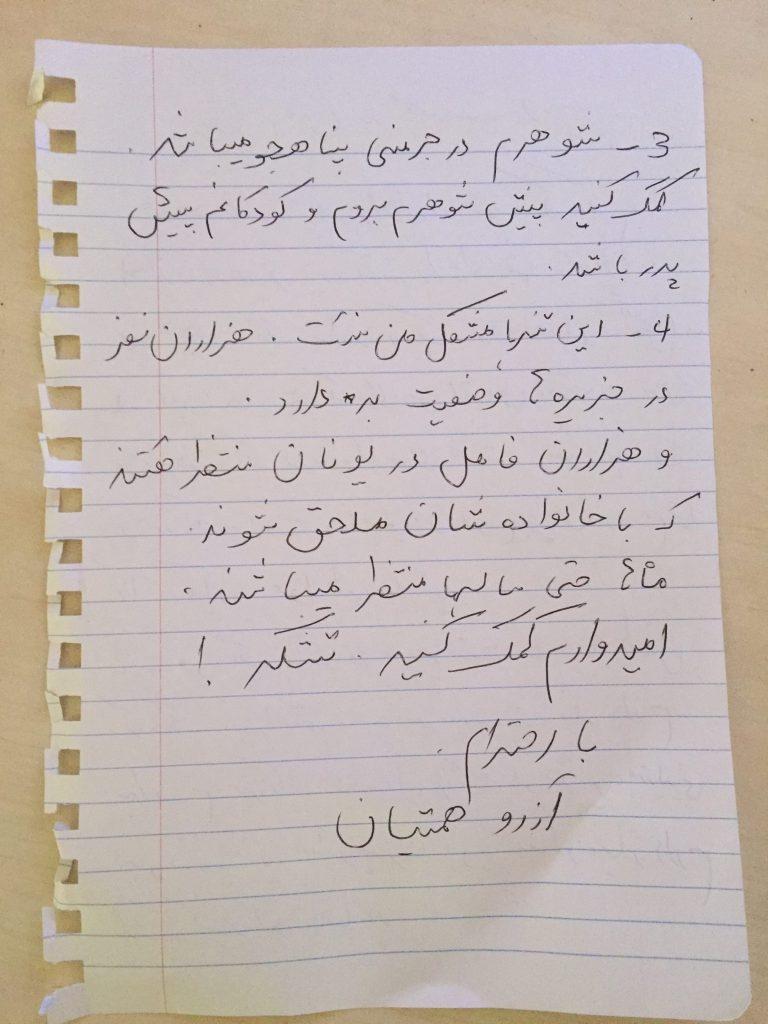 3- شوهرم در جرمنی پناهجو میباشد.
کمک کنید پیش شوهرم بروم و کودکانم پیش
پدر باشد.
4- این تنها مشکل من نیست. هزاران نفر
در جزیره ها وضعیت بد دارد.
و هزاران فامل در یونان منتظر هستند
که با خانواده شان ملحق شوند.
ماه ها حتی سالها منتظر میباشند.
امیدوارم کمک کنید. تشکر!
با احترام.
آرزو همتیان